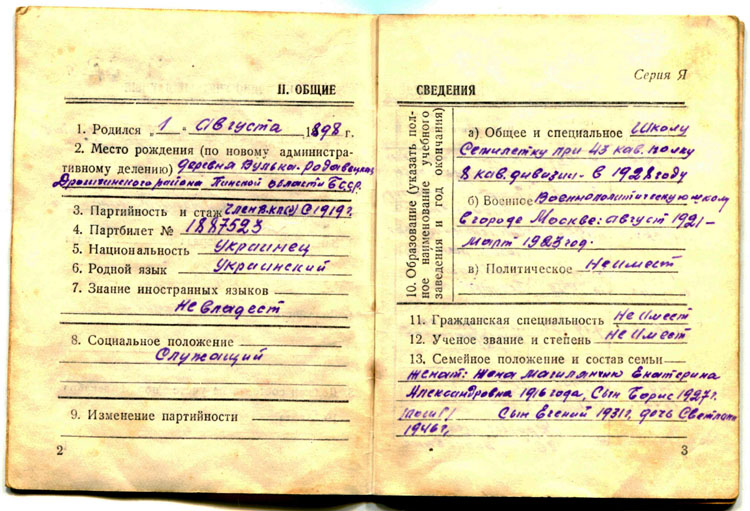 II. ОБЩИЕ
1. Родился „1" августа 1898 г.
2. Место рождения (по новому администра-
тивному делению) деревня Вулька-Родовецкая
Дрогичинского района Пинской области БССР.
3. Партийность и стаж член ВКП(б) с 1919 г.
4. Партбилет № 1887523
5. Национальность Украинец
6. Родной язык Украинский
7. Знание иностранных языков
Не владеет
8. Социальное положение
Служащий
9. Изменение партийности
2
Серия Я
СВЕДЕНИЯ
10. Образование (указать пол-
ное наименование учебного
заведения и год окончания)
а) Общее и специальное Школу
Семилетку при 43 кав. полку
8 кав. дивизии- в 1928 году
б) Военное Военнополитическую школу
в городе Москве: август 1921-
март 1923 год.
в) Политическое Не имеет
11. Гражданская специальность Не имеет
12. Ученое звание и степень Не имеет
13. Семейное положение и состав семьи
женат: Жена Магилянчик Екатерина
Александровна 1916 года, Сын Борис 1927 г.
/погиб/ Сын Евгений 1931 г. дочь Светлана
1946 г,
3